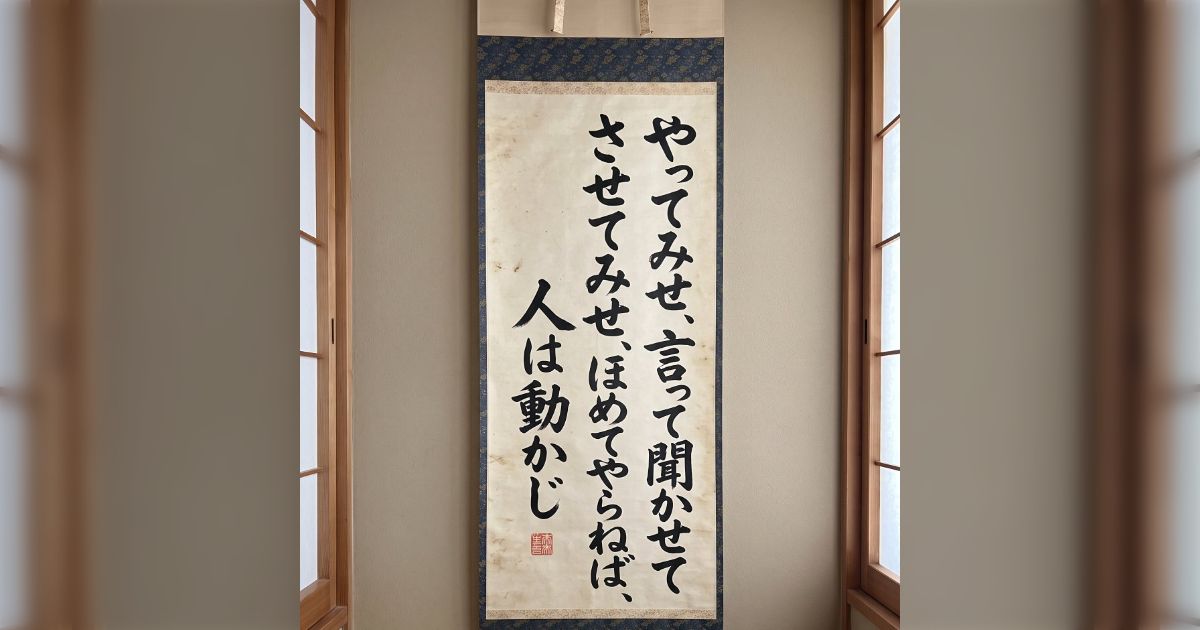 やってみせ、言って聞かせて
させてみせ、ほめてやらねば、
人は動かじ